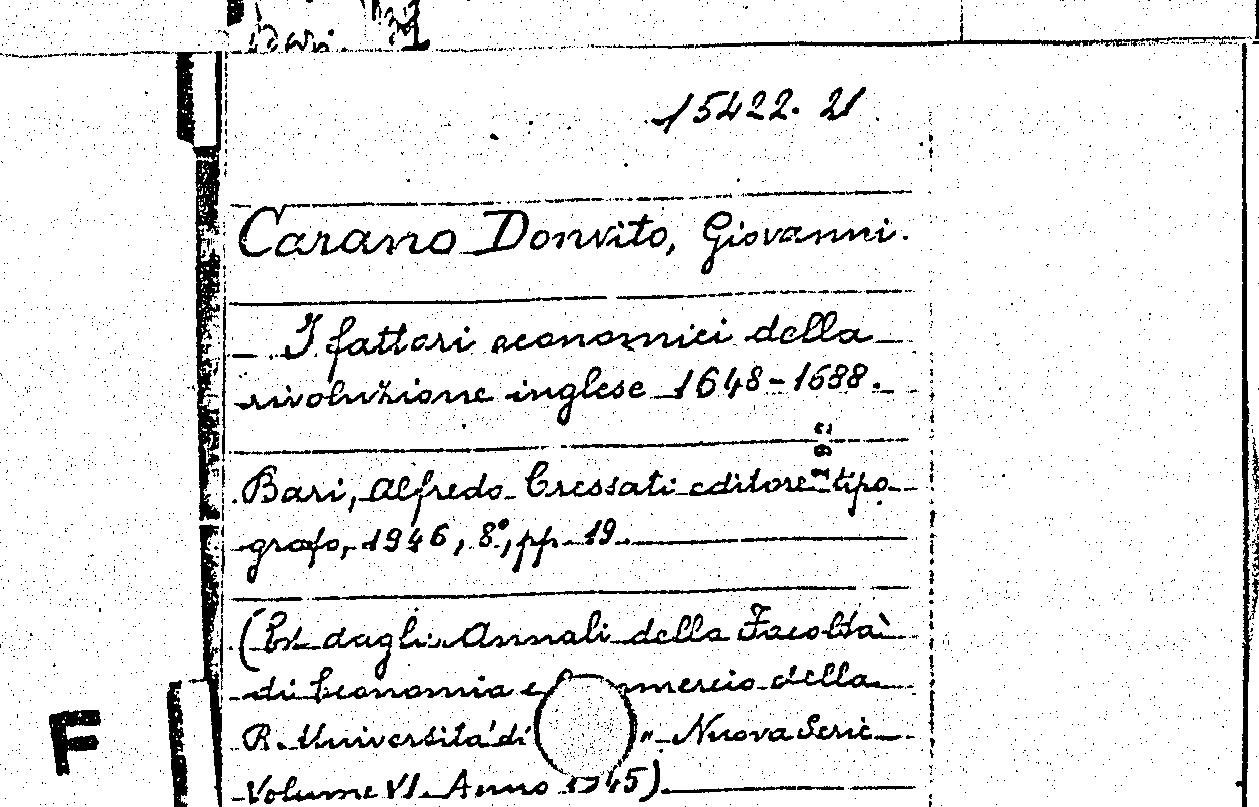 Bari.
15422. 21
Carano Donvito, Giovanni.
I fattori economici della
rivoluzione inglese 1648-1688.
Bari, Alfredo Cressati editore tipo
grafo, 1946, 8°, pp. 19.
(Est. dagli Annali della Facoltà
di Economia e Commercio della
R. Università di " Nuova Serie
Volume VI. Anno 1945)
F